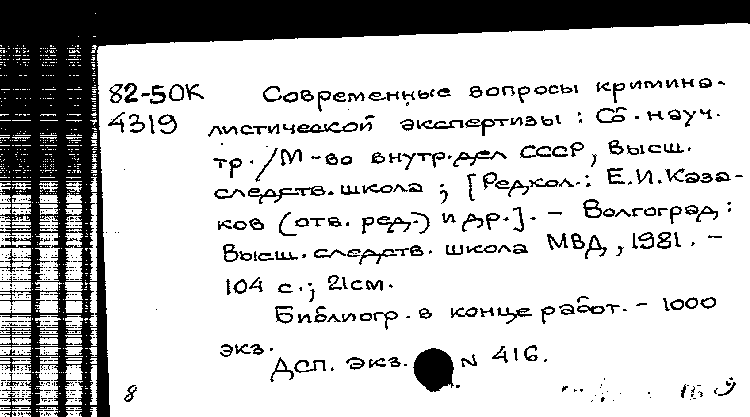 82-5ОК Современные вопросы кримина-
4319 листической экспертизы : Сб. науч.
тр. /М-во внутр. дел СССР, Высш.
следств. школа ; [Редкол.: Е.И. Каза-
ков (отв. ред.) и др.]. - Волгоград :
Высш. следств. школа МВД, 1981. -
104 с.; 21см.
Библиогр. в конце работ. - 1000
экз.
Дсп. экз. N 416.
8